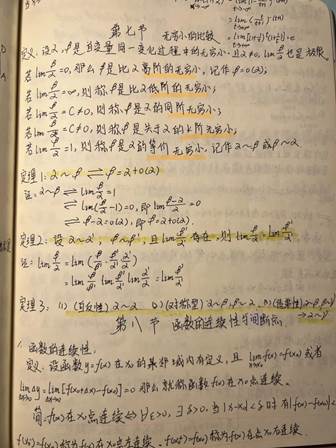 第七节 无穷小的比较
定义:设α,β是自变量同一变化过程中的无穷小,且α≠0,lim β/α 也是极限
若lim β/α=0,那么β是比α高阶的无穷小,记作β=o(α);
若lim β/α=∞,则称β是比α低阶的无穷小;
若lim β/α=C≠0,则称β是α的同阶无穷小;
若lim β/α^k=C≠0,则称β是关于α的k阶无穷小;
若lim β/α=1,则称β是α的等价无穷小,记作α~β或β~α
定理1:α~β ⇌ β=α+o(α)
证:α~β ⇌ lim β/α=1
⇌ lim(β/α-1)=0,即lim (β-α)/α=0
⇌ β-α=o(α),即β=α+o(α).
定理2:设α~α',β~β',且lim β'/α' 存在,则lim β/α=lim β'/α'
证:lim β/α=lim(β/β' · β'/α' · α'/α)
=lim β/β' lim β'/α' lim α'/α=lim β'/α'
定理3:(1)(自反性)α~α (2)(对称性)α~β,β~α (3)(传递性)α~β,β~γ
→α~γ
第八节 函数的连续性与间断点
一.函数的连续性.
定义:设函数y=f(x)在x₀的某邻域内有定义,且lim f(x)=f(x₀)或者
lim Δy=lim[f(x₀+Δx)-f(x₀)]=0 那么就称函数f(x)在x₀点连续.
简:f(x)在x₀点连续⇔∀ε>0,∃δ>0,当|x-x₀|<δ时有|f(x)-f(x₀)|<